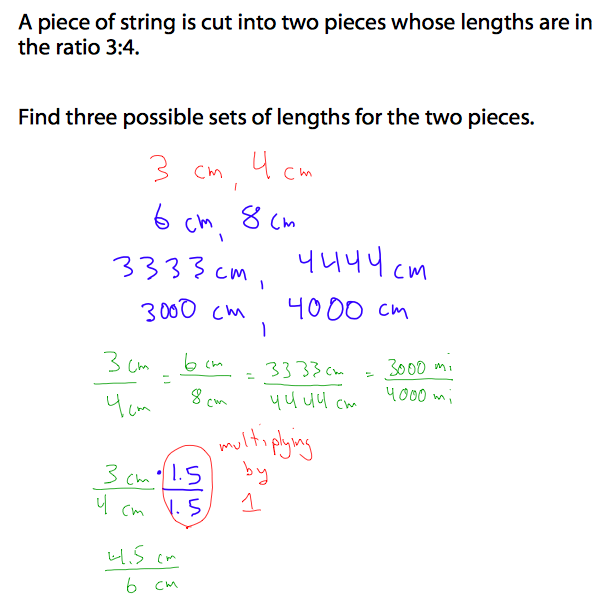 A piece of string is cut into two pieces whose lengths are in
the ratio 3:4.
Find three possible sets of lengths for the two pieces.
3 cm, 4 cm
6 cm, 8 cm
3333 cm, 4444 cm
3000 cm, 4000 cm
3 cm/4 cm = 6 cm/8 cm = 3333 cm/4444 cm = 3000 mi/4000 mi
multiplying
by
1
3 cm/4 cm • 1.5/1.5
4.5 cm/6 cm